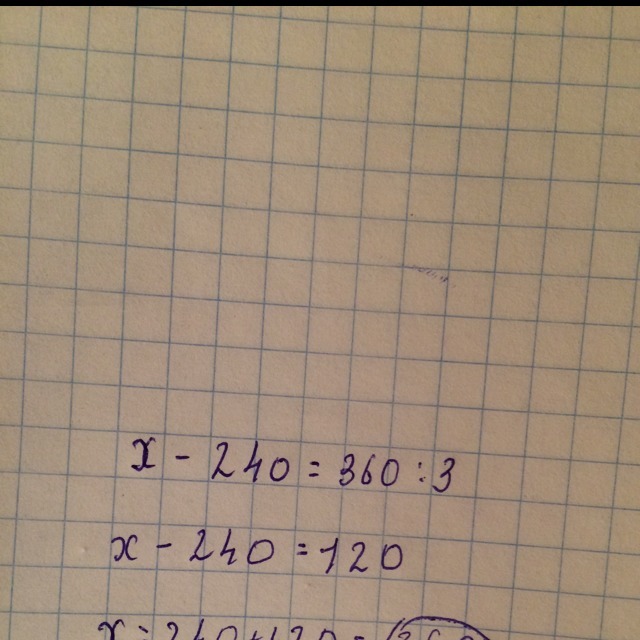 x - 240 = 360 : 3
x - 240 = 120
x = 240 + 120 =